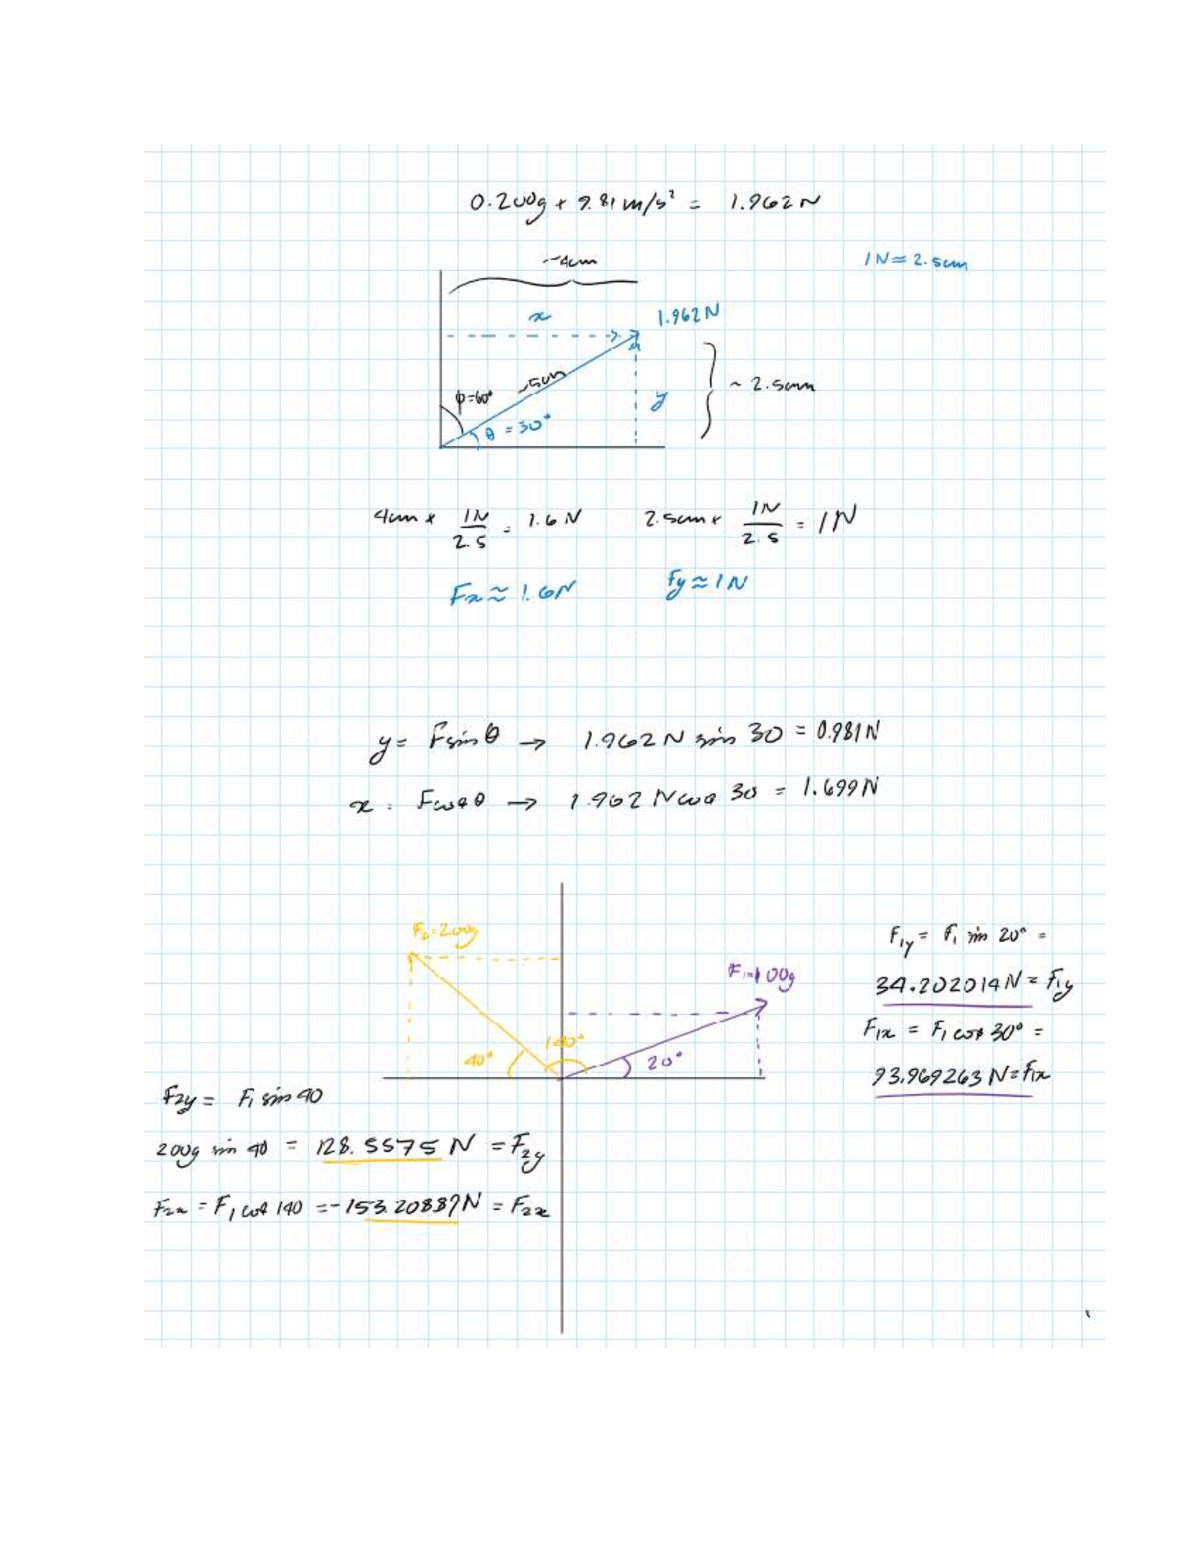 0.200g + 9.81 m/s² = 1.962N
~4cm
1N = 2.5cm
x
1.962N
~5cm
φ=60°
~ 2.5cm
y
θ = 30°
4cm × 1N/2.5 = 1.6N
2.5cm × 1N/2.5 = 1N
Fx ≈ 1.6N
Fy ≈ 1N
y = F sin θ → 1.962N sin 30 = 0.981N
x : F cos θ → 1.962 N cos 30 = 1.699N
F₂=200g
F₁y = F₁ sin 20° =
F₁=100g
34.202014N = F₁y
F₁x = F₁ cos 30° =
140°
40°
20°
93.969263N = F₁x
F₂y = F₁ sin 40
200g sin 40 = 128.5575 N = F₂y
F₂x = F₁ cos 140 = -153.20889N = F₂x